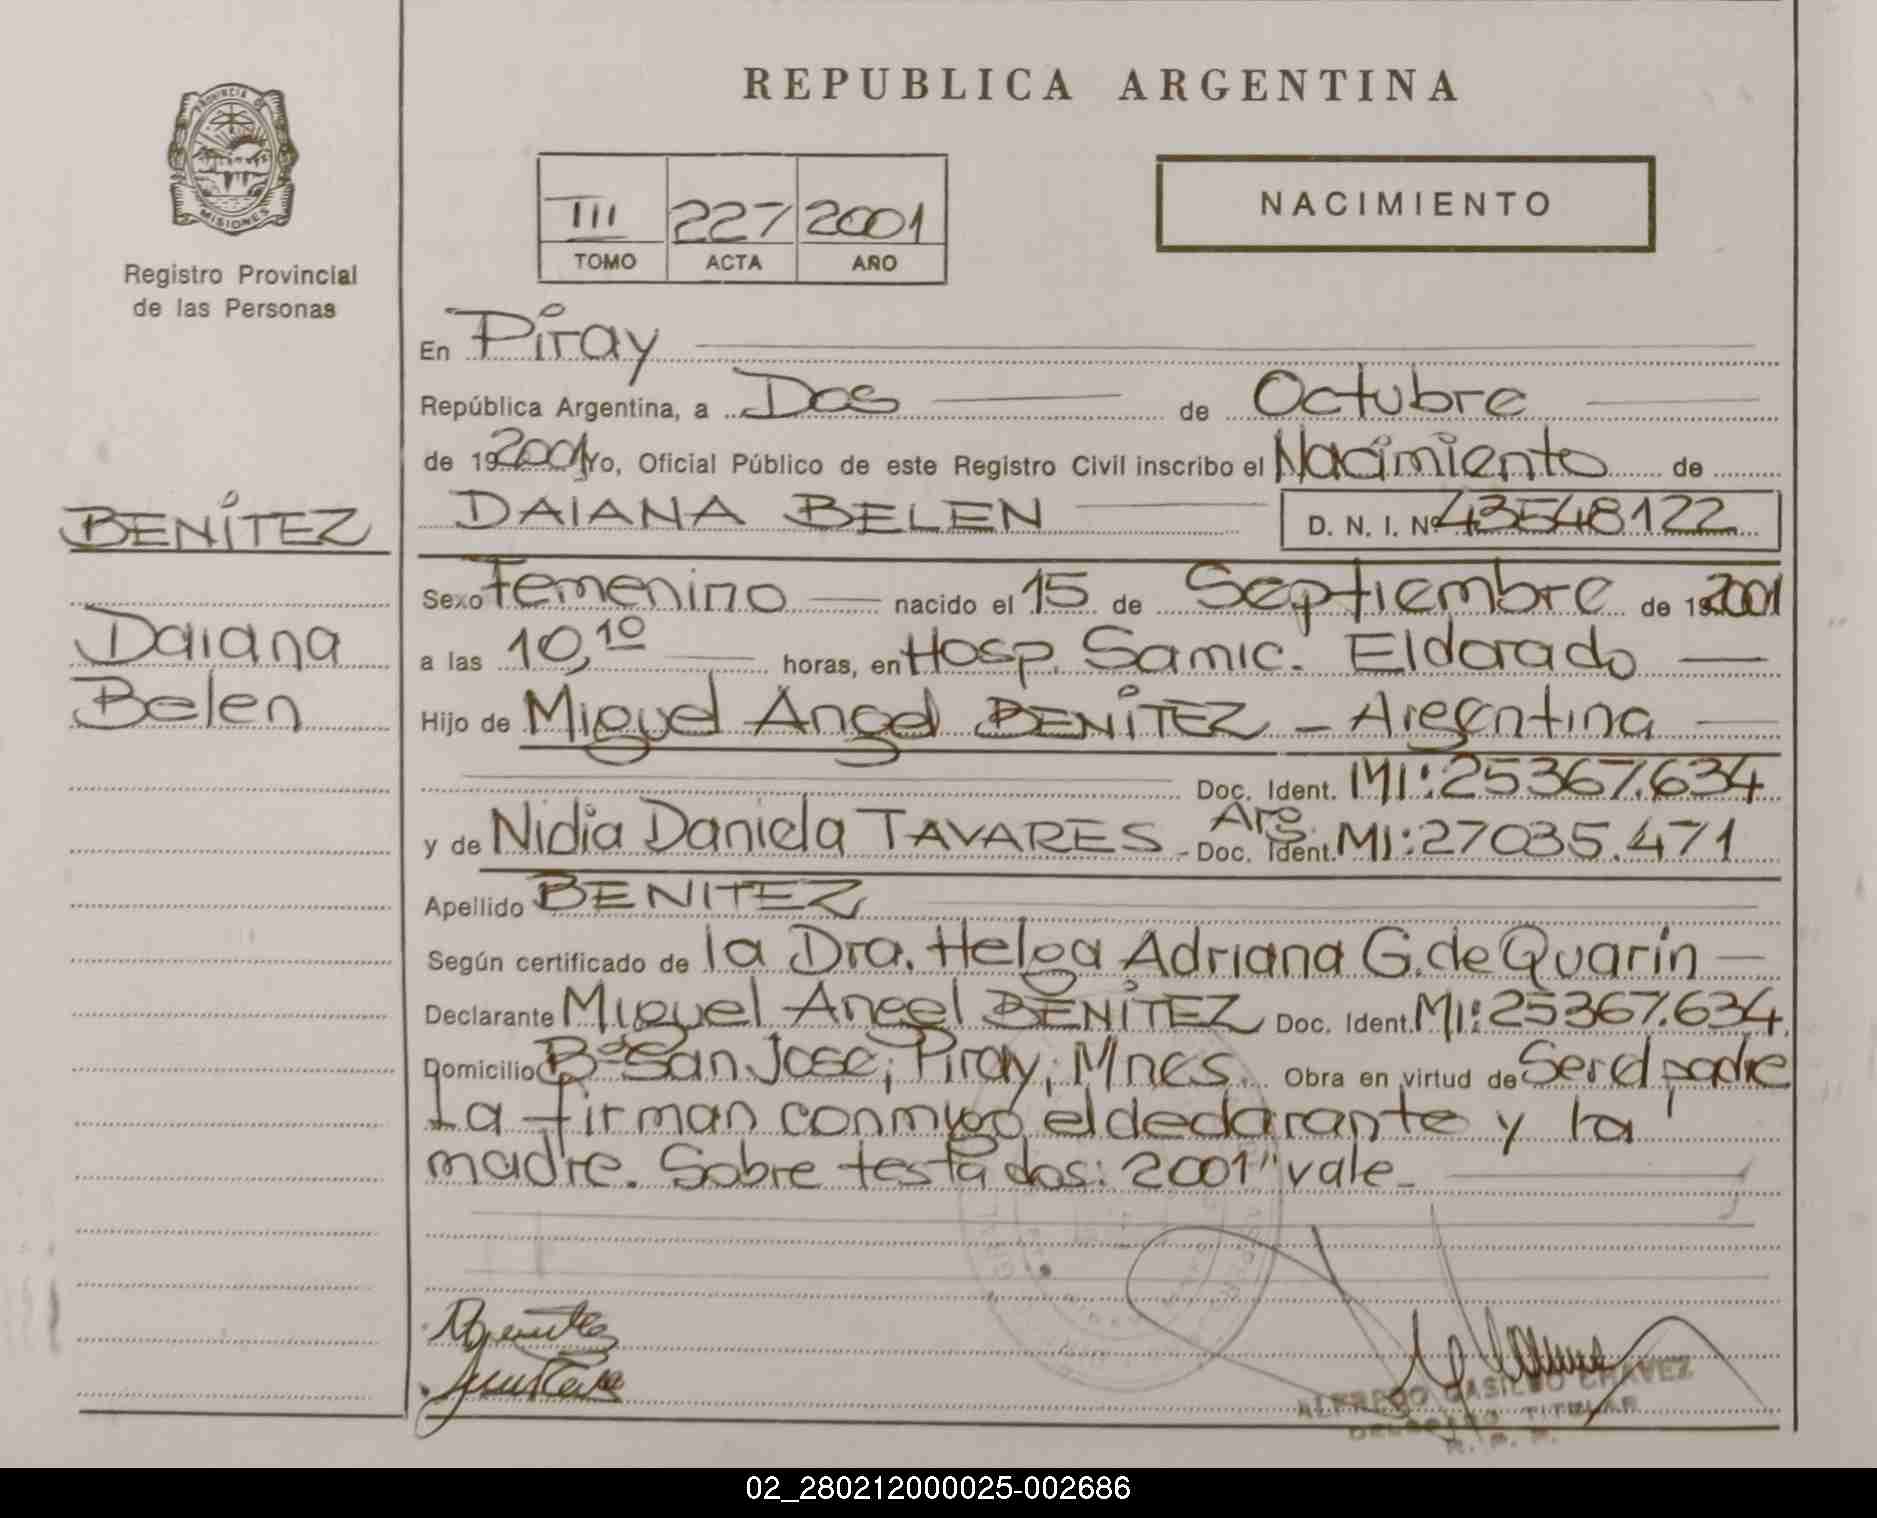 REPUBLICA ARGENTINA
PROVINCIA DE
MISIONES
Registro Provincial
de las Personas
III 227 2001
TOMO ACTA AÑO
NACIMIENTO
En Piray
República Argentina, a Dos de Octubre
de 192001 Yo, Oficial Público de este Registro Civil inscribo el Nacimiento de
BENÍTEZ
DAIANA BELEN D. N. I. Nº 43548122
Sexo Femenino nacido el 15 de Septiembre de 192001
Daiana
a las 10,10 horas, en Hosp. Samic. Eldorado
Belen
Hijo de Miguel Angel BENÍTEZ - Argentina
Doc. Ident. MI: 25367.634
y de Nidia Daniela TAVARES - Arg. Doc. Ident. MI: 27035.471
Apellido BENITEZ
Según certificado de la Dra. Helga Adriana G. de Quarin
Declarante Miguel Angel BENÍTEZ Doc. Ident. MI: 25367.634
Domicilio Bº San Jose; Piray; Mnes. Obra en virtud de Ser el padre
La firman conmigo el declarante y la
madre. Sobre testados: 2001" vale.
ALFREDO CASILDO CHAVEZ
DELEGADO TITULAR
R. P. P.
02_280212000025-002686